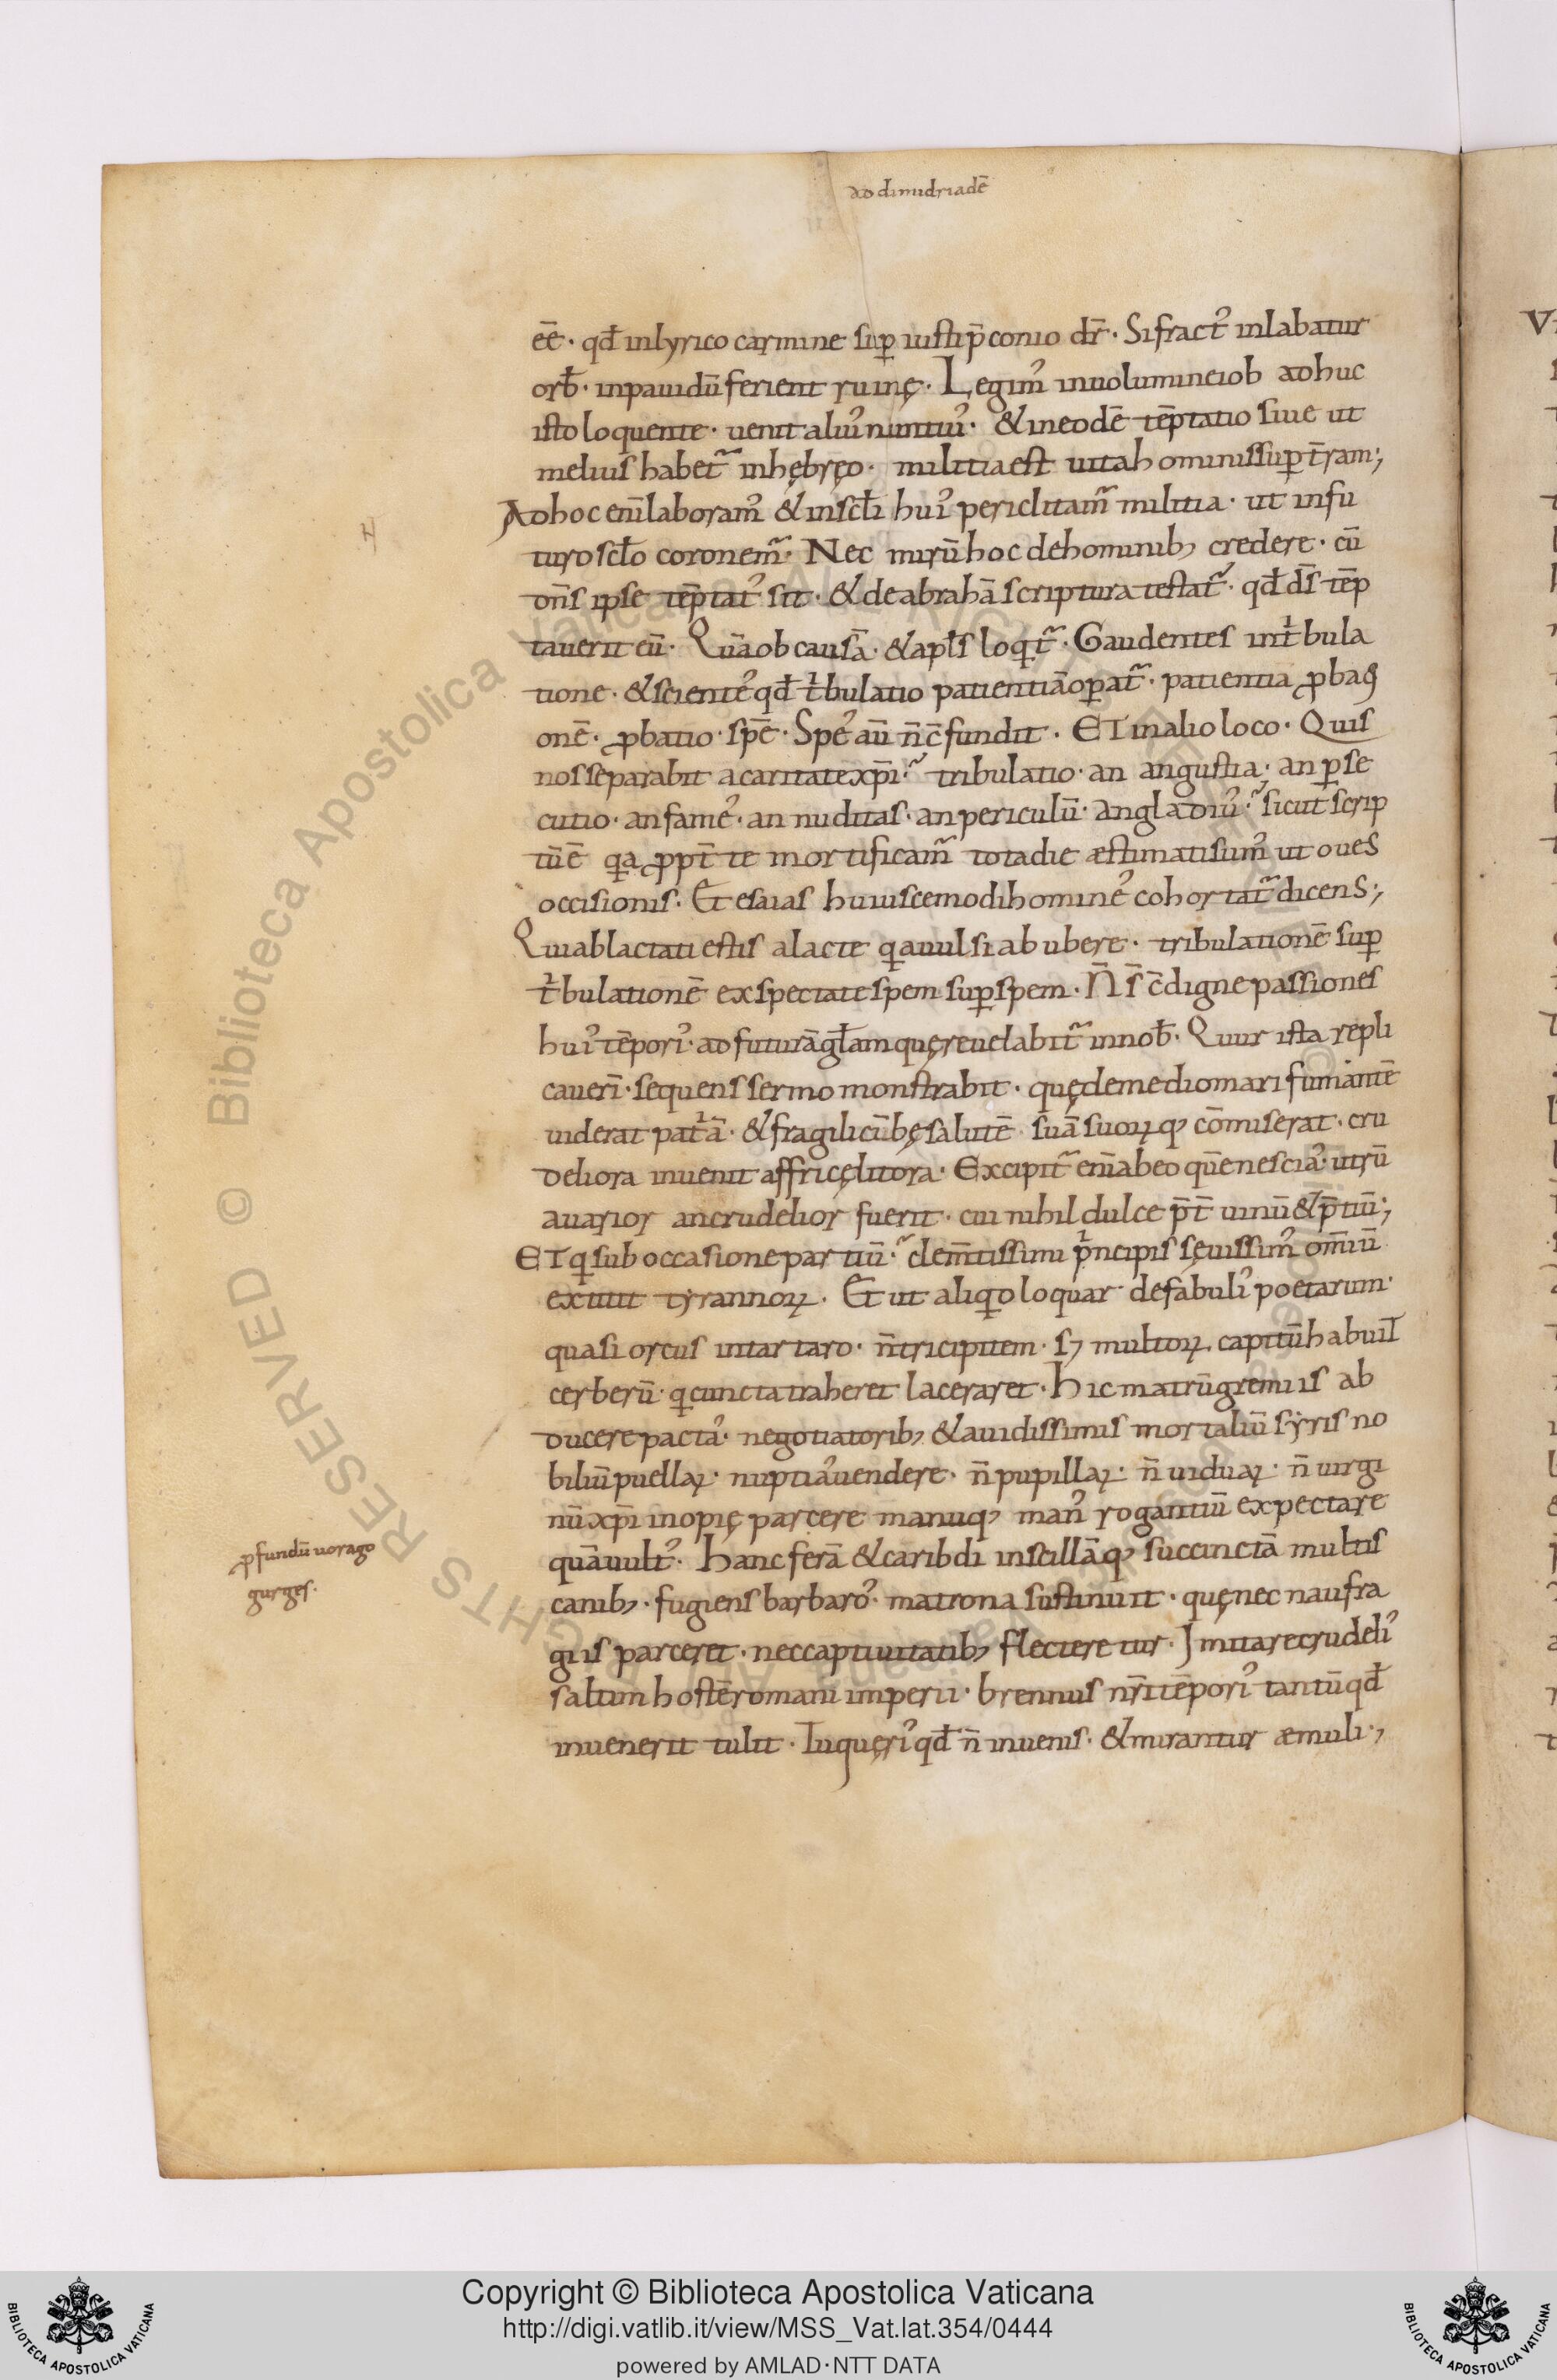 ad dimidriadē
ēē · qđ inlyrico carmine suꝑ iusti p̄conio dr̄ · Si fract᾿ inlabatur
orƀ · inpauidū ferient ruinę · Legim᾿ inuolumine iob adhuc
isto loquente · uenit aliu᾿ nuntiu᾿ · & ineodē tēptatio siue ut
melius habet᷑ inhębręo · militia est uita hominis suꝑ t̄ram ;
Adhoc eni̅ laboram᾿ & in scłi hui᾿ periclitam᷑ militia · ut infu
turo scło coronem᷑ · Nec mirū hoc dehominib; credere · cū
dn̄s ipse tēptat᾿ sit · & de abrahā scriptura testat᷑ · qđ ds̄ tēp
tauerit eū · Quāob causā · & apłs loqit᷑ · Gaudentes in tͥbula
tione · & sciente᾿ qđ tͥbulatio patientiā oꝑat᷑ · patientia ꝓbati
onē · ꝓbatio · spē · Spe᾿ au̅ n̄ c̄fundit · ET inalio loco · Quis
nos separabit acaritate xp̄i · tribulatio · an angustia · an ꝑse
cutio · an fame᾿ · an nuditas · an periculū · an gladiu᾿ · sicut scrip
tū ē qa ꝓpt̄ te mortificam᷑ tota die æstimati sum᾿ ut oues
occisionis · Et esaias huiuscemodi homine᾿ cohortat᷑ dicens ;
Qui ablactati estis alacte qi auulsi ab ubere · tribulationē suꝑ
tͥbulationē exspectate spem suꝑ spem · N̄ s̄ c̄digne passiones
hui᾿ tēpori᾿ · ad futurā głam quę reuelabit᷑ in noƀ · Quur ista repli
cauerī · sequens sermo monstrabit · quę demedio mari fumantē
uiderat patͥā · & fragili cȳbę salutē suā suoꝝq᾿ cōmiserat · cru
deliora inuenit affricę litora · Excipit᷑ eni̅ abeo quē nescia᾿ · utrū
auarior an crudelior fuerit · cui nihil dulce p̄t̄ uinū & p̄tiū ;
ET qi sub occasione partiū · clem̄tissimi pͥncipis sęuissim᾿ om̄iū
extitit tyrannoꝝ · Et ut aliqid loquar defabuli᾿ poetarum ·
quasi orcus in tartaro · n̄ tricipitem · sꝫ multoꝝ capitū habuit
cerberū · qi cuncta traheret laceraret · Hic matrū gremiis ab
ducere pacta᾿ · negotiatorib; & auidissimis mortaliū syris no
biliū puellaꝝ · nuptia᾿ uendere · n̄ pupillaꝝ · n̄ uiduaꝝ · n̄ uirgi
nū xp̄i inopię parcere manuq᾿ man᾿ rogantiū expectare
quā uult᾿ · Hanc ferā & caribdi in scillāq᾿ succinctā multis
canib; · fugiens barbaro᾿ · matrona sustinuit · quę nec naufra
giis parceret · nec captiuitatib; flecteretur · Imitare crudeli᾿
saltim hostē romani imperii · brennus nr̄i tēpori᾿ tantū qđ
inuenerit tulit · Tu quęri᾿ qđ n̄ inuenis · & mirantur æmuli ;
ꝓfundū uorago
gurgitas
Copyright © Biblioteca Apostolica Vaticana
http://digi.vatlib.it/view/MSS_Vat.lat.354/0444
powered by AMLAD·NTT DATA
BIBLIOTECA APOSTOLICA VATICANA
BIBLIOTECA APOSTOLICA VATICANA